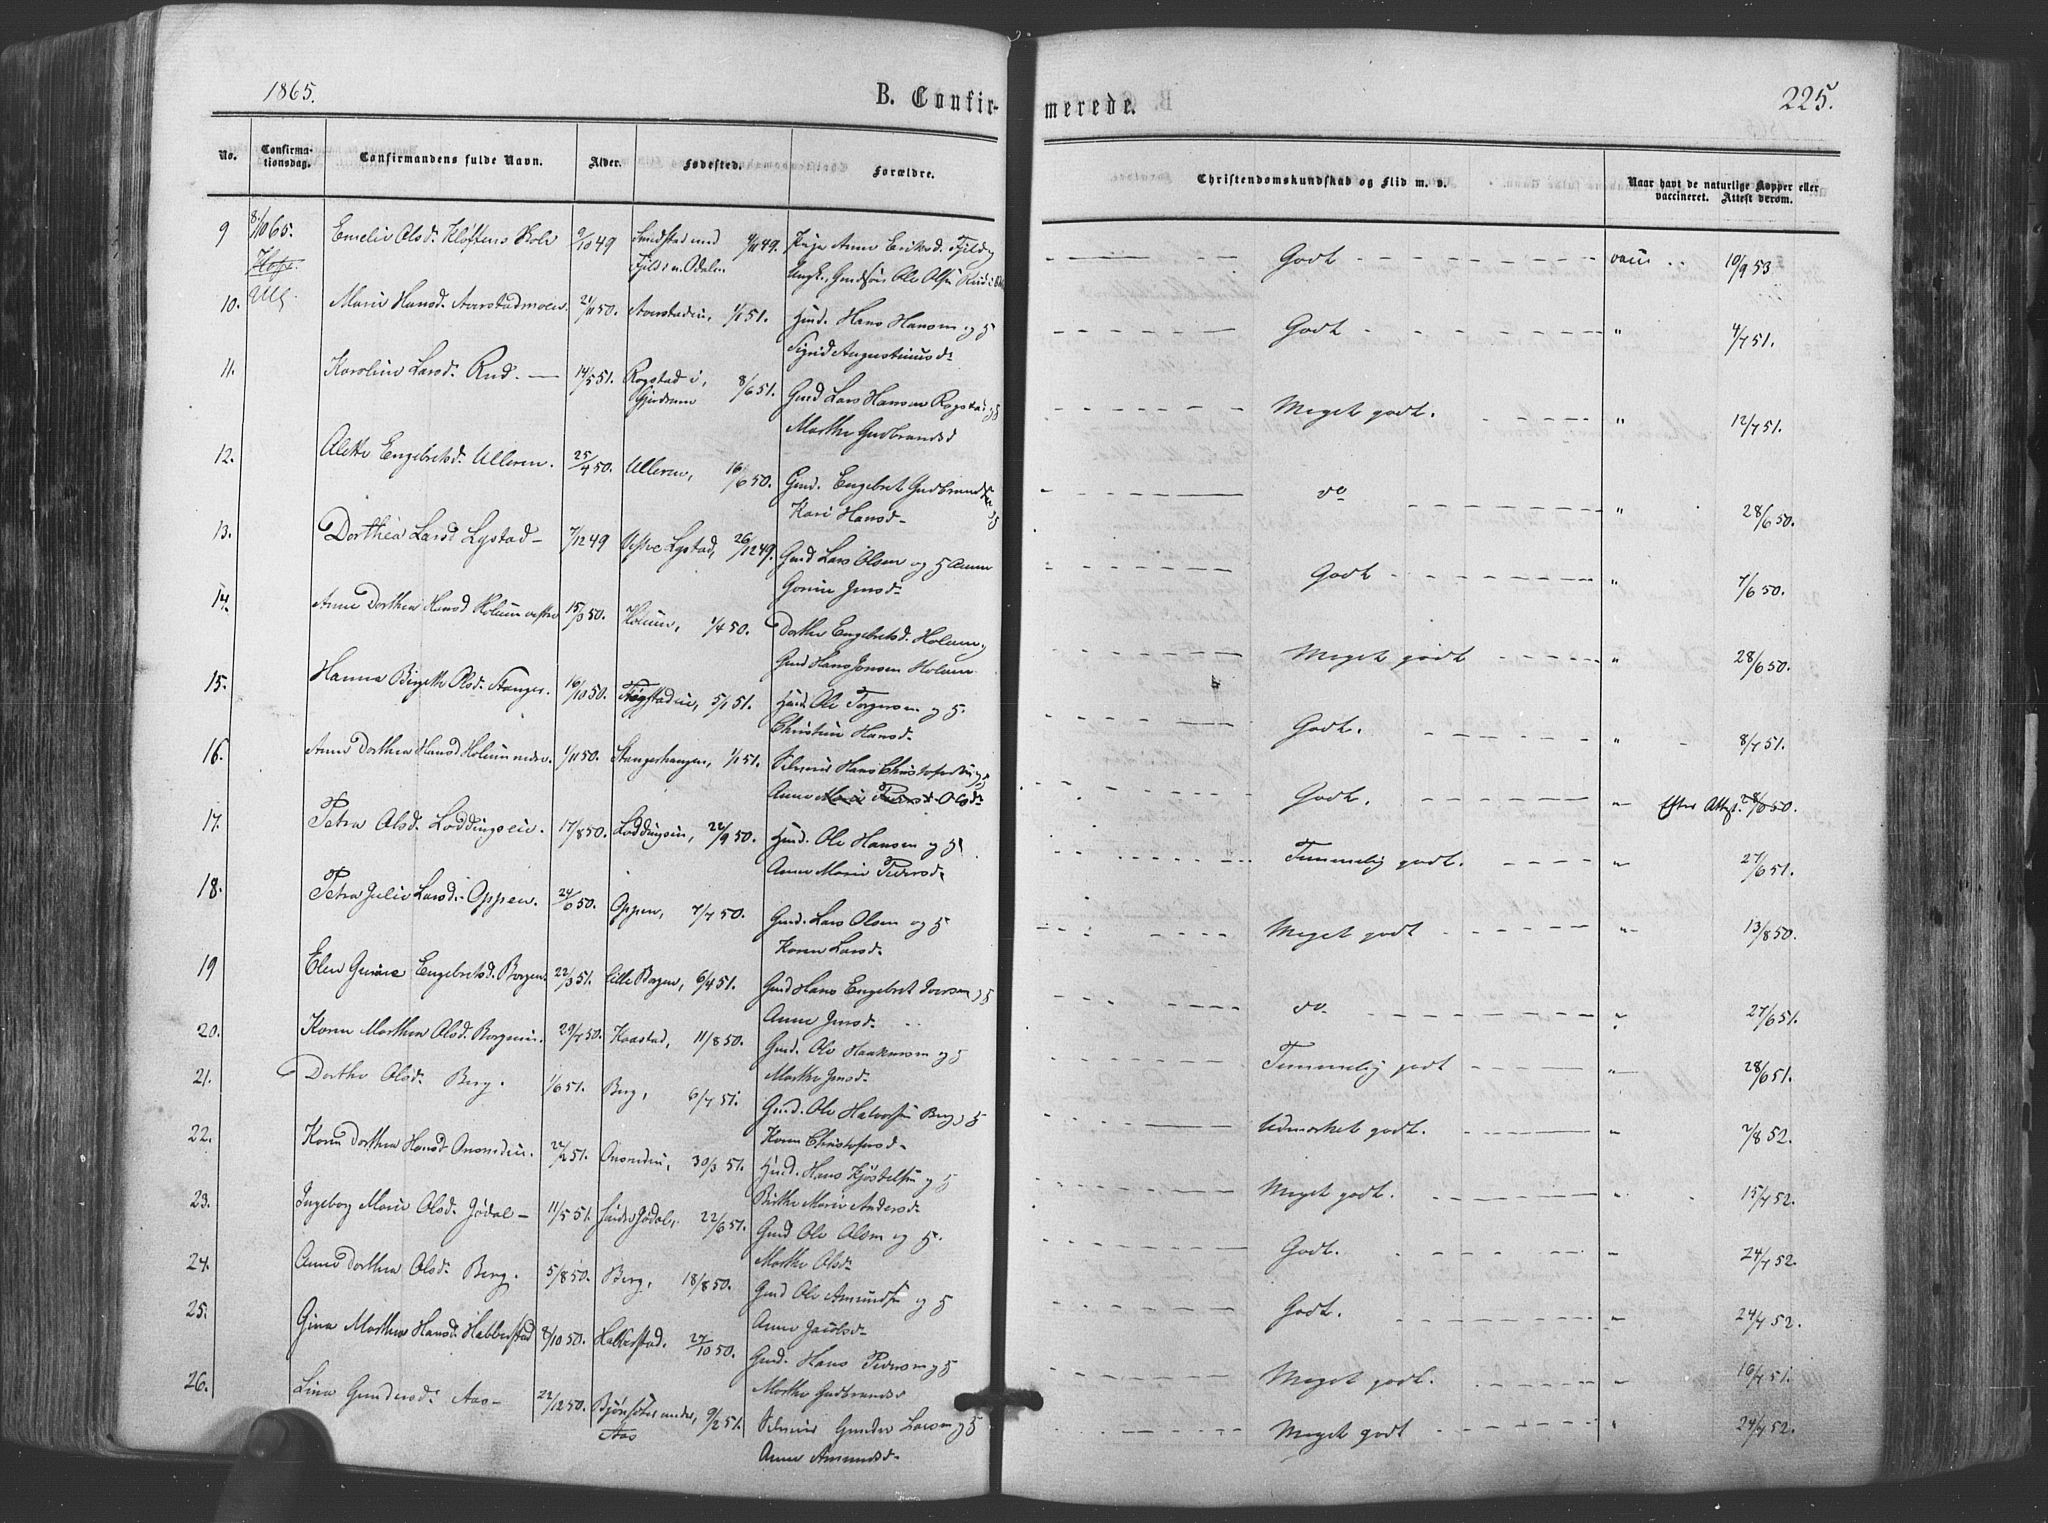 1865.
B. Confir-
merede.
225.
No.
Confirma-
tionsdag.
Confirmandens fulde Navn.
Alder.
Fødested.
Forældre.
Christendomskundskab og Flid m. v.
Naar havt de naturlige Kopper eller
vaccineret. Attest derom.
9 8/10 65. Emelie Olsd. 9/10 49 4/11 49. Pige Anne Eriksd.
Godt vacc 10/9 53
Ull
10. Marie Hansd. Aarstadmoen 21/11 50. 1/1 51. Hmd. Hans Hansen og H
Sigrid Augustinusd.
Godt " 4/7 51.
11. Karoline Larsd. Rud. 14/5 51. Rogstad i, 8/6 51. Gmd Lars Hansen Rogstad og H
Gjerdrum
Marthe Gudbrandsd
Meget godt. " 12/7 51.
12. Alette Engebretsd. Ulleren. 25/4 50. Ulleren, 16/6 50. Gmd. Engebret Gudbrands
Kari Hansd.
do " 28/6 50.
13. Dorthea Larsd Lystad 7/12 49 Lystad, 26/12 49. Gmd Lars Olsen og H Anne
Gorine Jensd.
Godt " 7/6 50.
14. Anne Dorthea Hansd Holum vestre 15/3 50. Holum, 1/4 50. Dorthe Engebretsd. Holum,
Gmd Hans Jensen Holum
Meget godt " 28/6 50.
15. Hanna Birgitte Olsd. Stanger. 16/10 50. 5/1 51. Hmd. Ole Torgersen og H.
Christine Hansd.
Godt. " 8/7 51.
16. Anne Dorthea Hansd Holum nedre. 1/11 50. Stangerhaugen, 1/1 51. Hans
Anne Marie Pedersd Olsd.
Godt. " Efter Attest. 28/6 50.
17. Petra Olsd. Loddingseie. 17/8 50. Loddingseie, 22/9 50. Hmd. Ole Hansen og H
Anne Marie Pedersd.
Temmelig godt. " 27/6 51.
18. Petra Julie Larsd. Oppen. 24/6 50. Oppen, 7/7 50. Gmd. Lars Olsen og H
Karen Larsd.
Meget godt " 13/8 50.
19 Elen Engebretsd. Borgen 22/3 51. Lille Borgen, 6/4 51. Gmd Hans Engebret Iversen og H
Anne Jensd.
do. " 27/6 51.
20. Karen Marthea Olsd. Borgeneie. 29/7 50. Kaastad, 11/8 50. Gmd. Ole Haakensen og H
Marthe Jensd.
Temmelig godt " 28/6 51.
21. Dorthe Olsd. Berg. 1/6 51. Berg, 6/7 51. Gmd. Ole Halvorsen Berg og H
Karen Christofersd.
Udmærket godt. " 2/8 52.
22. Karen Dorthea Hansd 22/2 51. 30/3 51. Hmd. Hans Kjøstelsen og H
Birthe Marie Andersd.
Meget godt. " 15/7 52.
23. Ingeborg Marie Olsd. Jødal 11/5 51. Jødal, 22/6 51. Gmd Ole Olsen og H.
Marthe Olsd.
Godt. " 24/7 52.
24. Anne Dorthea Olsd. Berg. 5/8 50. Berg, 18/8 50. Gmd Ole Amundsen og H
Anne Jacobsd.
Godt. " 24/7 52.
25. Gina Marthea Hansd. Habberstad 8/10 50. Habberstad. 27/10 50. Gmd. Hans Pedersen og H
Marthe Gudbrandsd
Meget godt. " 16/7 51.
26. Lina Gundersd. Aas 22/12 50. 9/2 51. Gunder Larsen og H
Aas
Anne Amundsd.
Meget godt " 24/7 52.